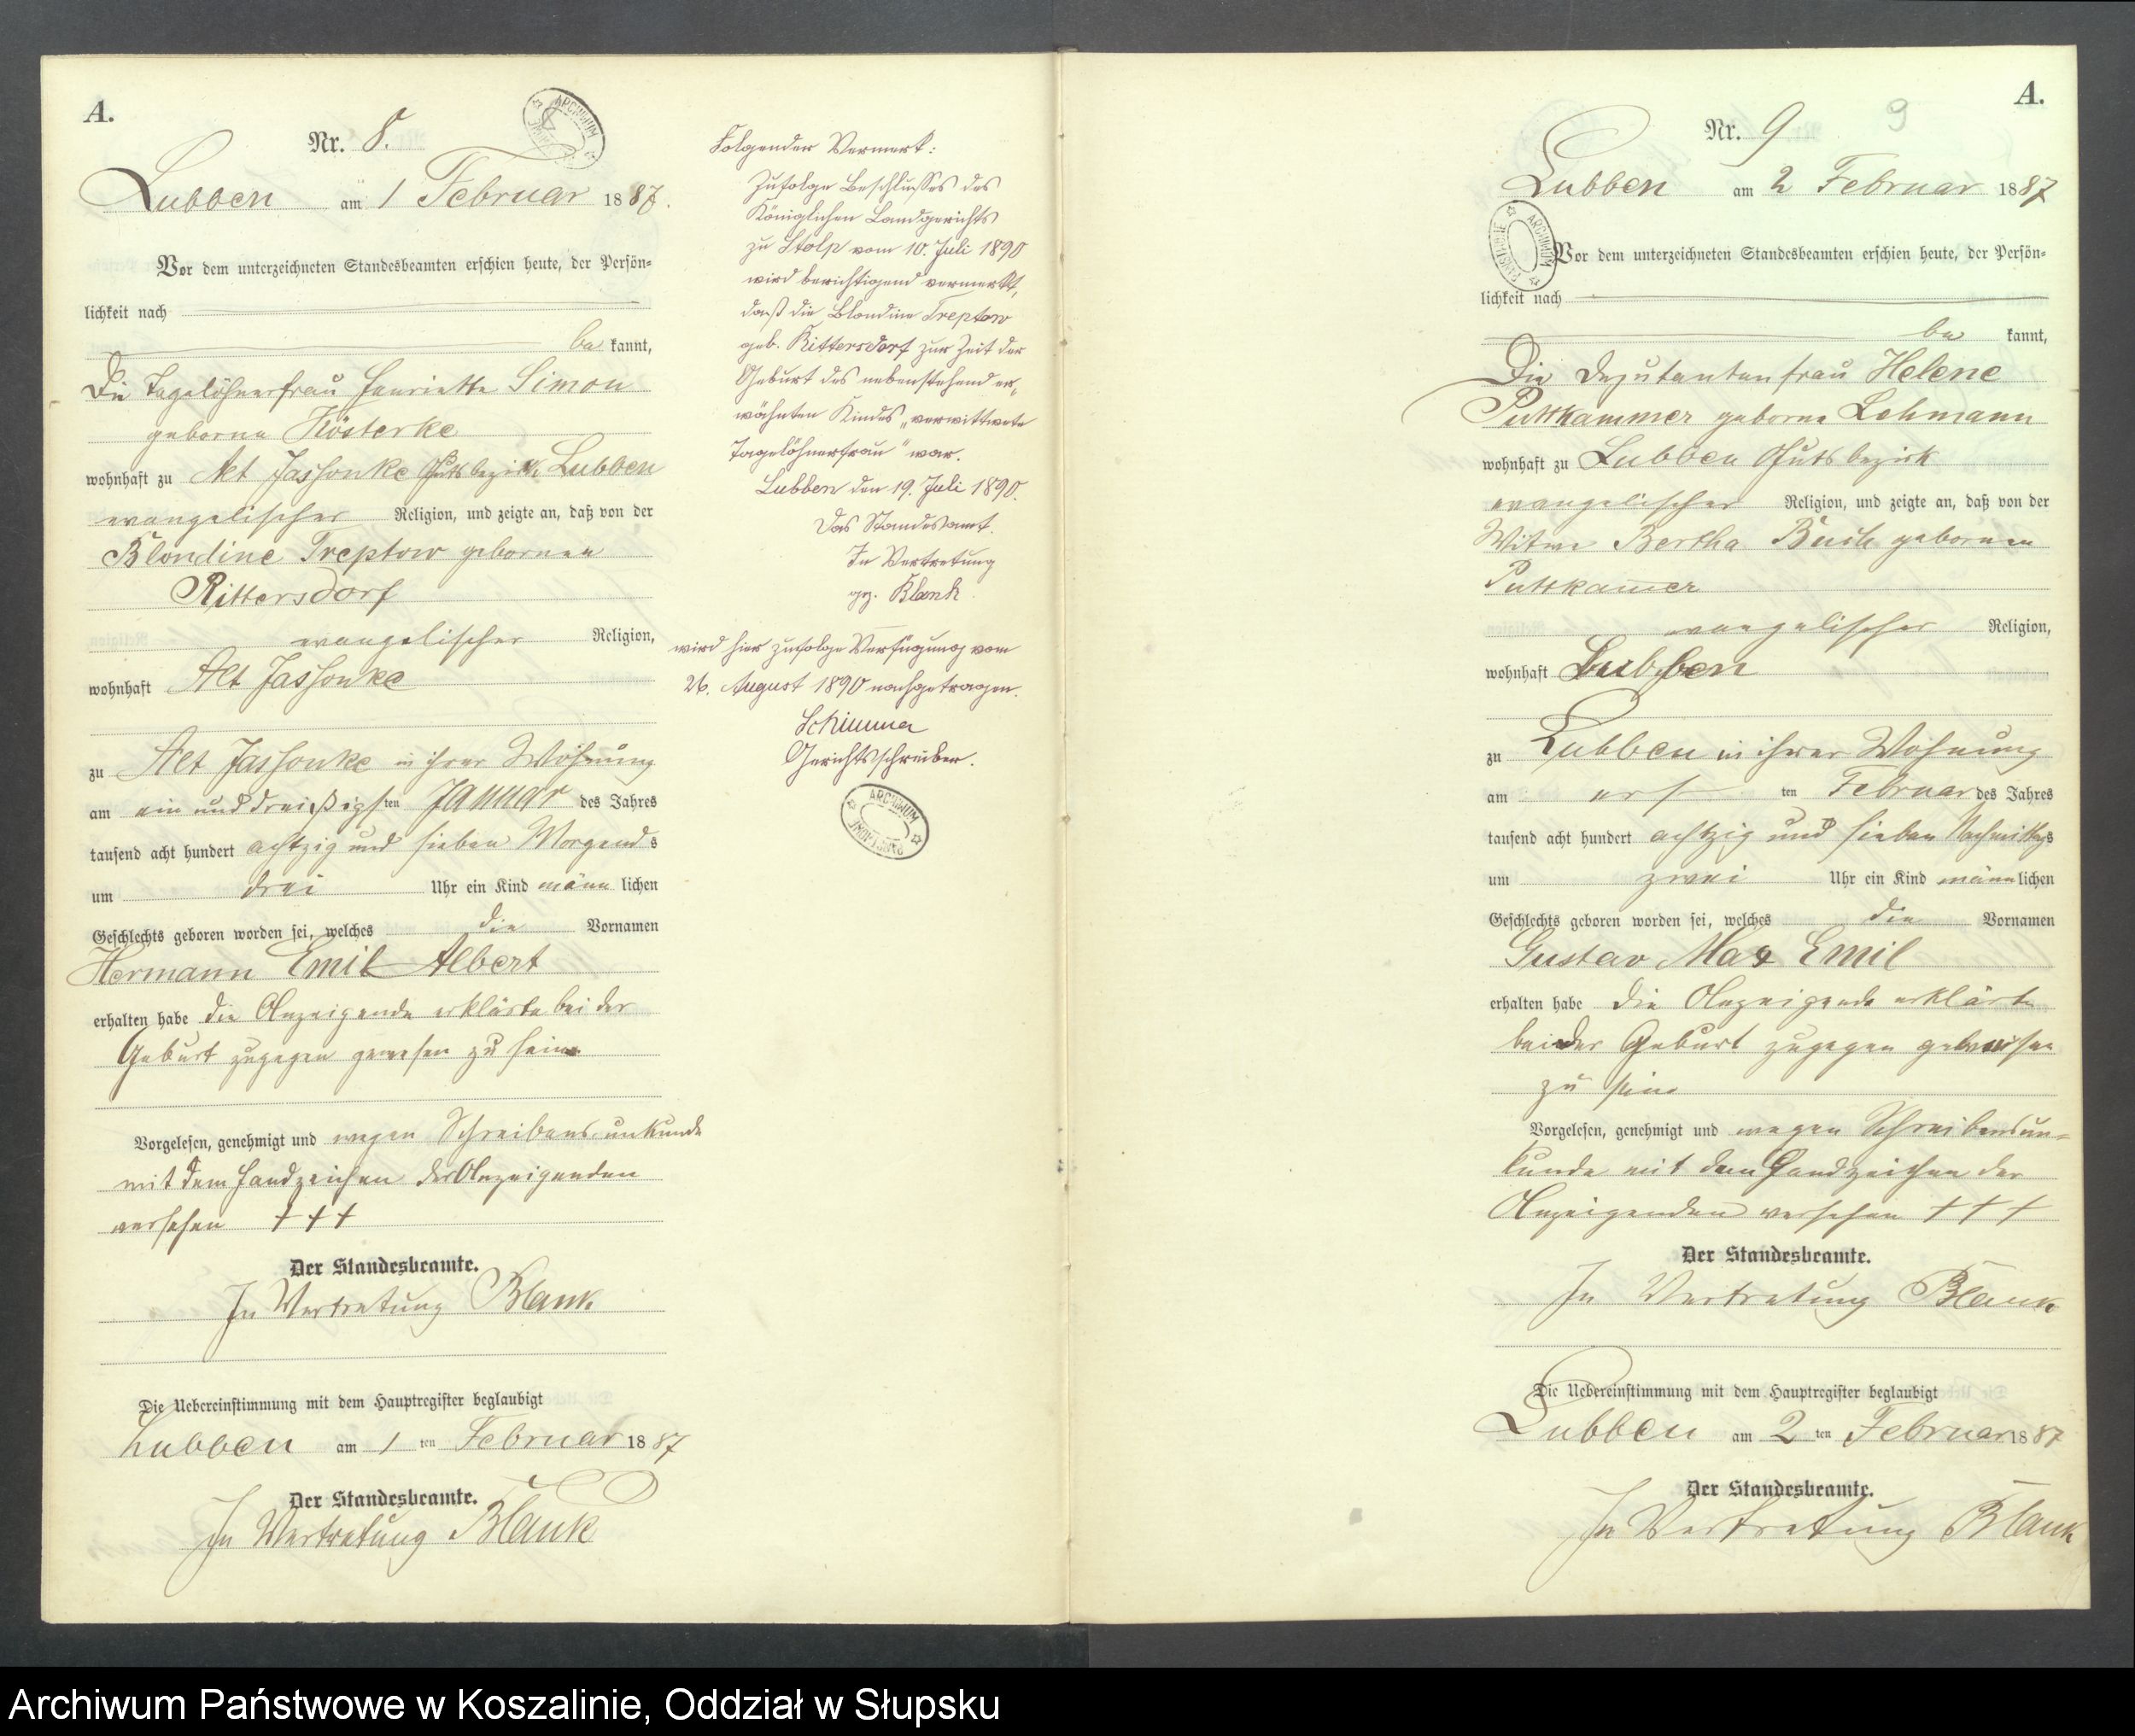 A.
Nr. 8.
Lubben am 1 Februar 1887.
Vor dem unterzeichneten Standesbeamten erschien heute, der Persön-
lichkeit nach
be kannt,
Die Tagelöhnerfrau Henriette Simon
geborne Kösterke
wohnhaft zu Alt Jassonke Gutsbezirk Lubben
evangelischer Religion, und zeigte an, daß von der
Blondine Treptow gebornen
Rittersdorf
evangelischer Religion,
wohnhaft Alt Jassonke
zu Alt Jassonke in ihrer Wohnung
am ein und dreißigsten Januar des Jahres
tausend acht hundert achtzig und sieben Morgends
um drei Uhr ein Kind männlichen
Geschlechts geboren worden sei, welches die Vornamen
Hermann Emil Albert
erhalten habe die Anzeigende erklärte bei der
Geburt zugegen gewesen zu sein
Vorgelesen, genehmigt und wegen Schreibens unkunde
mit dem Handzeichen der Anzeigenden
versehen +++
Der Standesbeamte.
In Vertretung Blank
Die Uebereinstimmung mit dem Hauptregister beglaubigt
Lubben am 1 ten Februar 1887
Der Standesbeamte.
In Vertretung Blank
Folgender Vermerk:
Zufolge Beschlusses des
Königlichen Landgerichts
zu Stolp vom 10. Juli 1890
wird berichtigend vermerkt,
daß die Blondine Treptow
geb. Rittersdorf zur Zeit der
Geburt des nebenstehend er-
wähnten Kindes „verwittwete
Tagelöhnerfrau" war.
Lubben den 19. Juli 1890.
Das Standesamt.
In Vertretung
gez. Blank
wird hier zufolge Verfügung vom
26. August 1890 nachgetragen.
Gerichtsschreiber.
ARCHIWUM
A.
Nr. 9
9
Lubben am 2 Februar 1887
ARCHIWUM PAŃSTWOWE
Vor dem unterzeichneten Standesbeamten erschien heute, der Persön-
lichkeit nach
be kannt,
Die Deputantenfrau Helene
Puttkammer geborne Lehmann
wohnhaft zu Lubben Gutsbezirk
evangelischer Religion, und zeigte an, daß von der
Witwe Bertha gebornen
Puttkamer
evangelischer Religion,
wohnhaft Lubben
zu Lubben in ihrer Wohnung
am ers ten Februar des Jahres
tausend acht hundert achtzig und sieben Nachmittags
um zwei Uhr ein Kind männlichen
Geschlechts geboren worden sei, welches die Vornamen
Gustav Max Emil
erhalten habe die Anzeigende erklärte
bei der Geburt zugegen gewesen
zu sein
Vorgelesen, genehmigt und wegen Schreibensun-
kunde mit dem Handzeichen der
Anzeigenden versehen +++
Der Standesbeamte.
In Vertretung Blank
Die Uebereinstimmung mit dem Hauptregister beglaubigt
Lubben am 2 ten Februar 1887
Der Standesbeamte.
In Vertretung Blank
Archiwum Państwowe w Koszalinie, Oddział w Słupsku